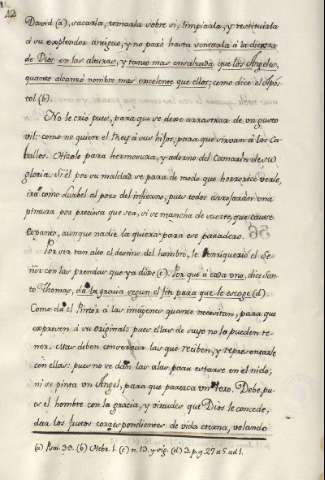 David (a), sacarla, tomarla sobre si, limpiarla, y restituirla
á su explendor antiguo, y no paró hasta sentarla á la diestra
de Dios en las alturas, y tanto mas ensalzada que los Angeles,
quanto alcanzó nombre mas excelente que ellos; como dice el Após-
tol (b).
No le crió pues, para que se dexe arrastrar de un gusto
vil: como no quiere el Rey á sus hijos, para que sirvan á los Ca-
ballos. Hizole para hermosura, y adorno del Camarin de su
gloria. Si él por su maldad se para de modo que horrorice verle,
irá como Luzbel al pozo del infierno, pues todos arrojarán una
pintura por preciosa que sea, si se mancha de suerte, que cause
espanto, aunque nadie la quiera para ese paradero.
Por ser tan alto el destino del hombre, le enriqueció el Se-
ñor con las prendas que ya dixe (c). Por que á cada uno, dice San-
to Thomas, da la gracia segun el fin para que le escoge (d).
Como da el Pintor á las imagenes quanto necesitan, para que
expresen á su original: pues ellas de suyo no lo pueden te-
ner. Mas deben conservar las que reciben, y representarle
con ellas: pues no se dan las alas para estarse en el nido;
ni se pinta un Angel, para que parezca un feo. Debe, pu-
es el hombre con la gracia, y virtudes que Dios le concede,
dar los frutos correspondientes de vida eterna, volando
(a) Psal. 30. (b) Hebr. 1. (c) n. 13. y sig. (d) 3. p. q. 27. a. 5. ad 1.